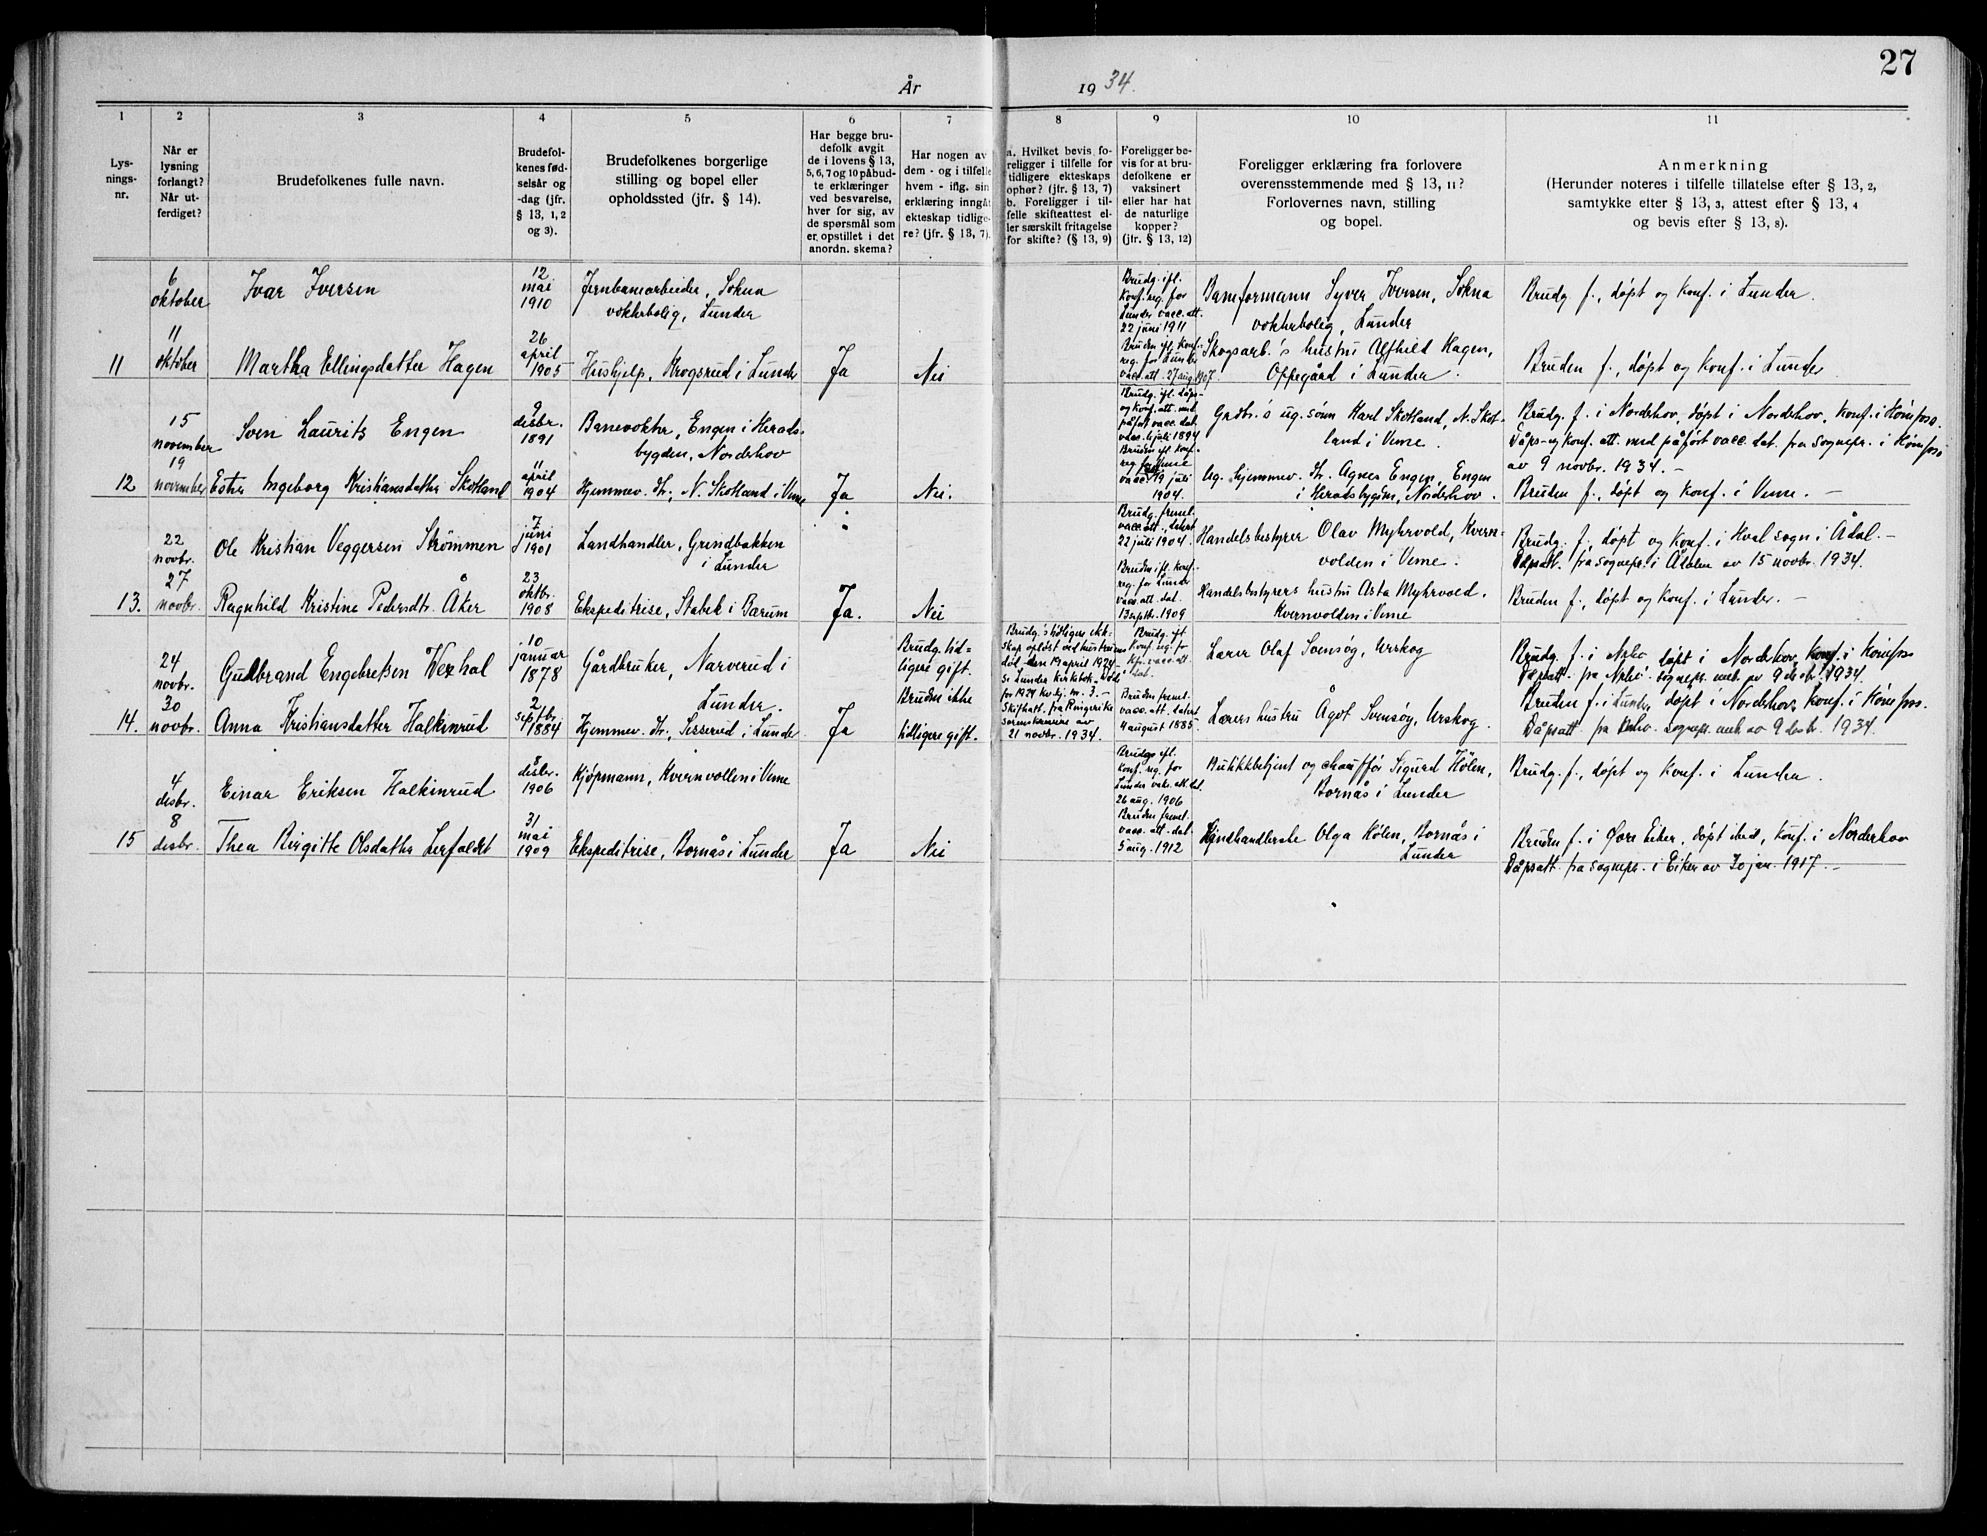 27
År 1934.
1 2 3 4 5 6 7 8 9 10 11
Lys-
nings-
nr.
Når er
lysning
forlangt?
Når ut-
ferdiget?
Brudefolkenes fulle navn.
Brudefol-
kenes fød-
selsår og
-dag (jfr.
§ 13, 1, 2
og 3).
Brudefolkenes borgerlige
stilling og bopel eller
opholdssted (jfr. § 14).
Har begge bru-
defolk avgit
de i lovens § 13,
5, 6, 7 og 10 påbud-
te erklæringer
ved besvarelse,
hver for sig, av
de spørsmål som
er opstillet i det
anordn. skema?
Har nogen av
dem - og i tilfelle
hvem - iflg. sin
erklæring inngåt
ekteskap tidlige-
re? (jfr. § 13, 7).
a. Hvilket bevis fo-
religger i tilfelle for
tidligere ekteskaps
ophør? (jfr. § 13, 7)
b. Foreligger i til-
felle skifteattest el-
ler særskilt fritagelse
for skifte? (§ 13, 9)
Foreligger be-
vis for at bru-
defolkene er
vaksinert
eller har hat
de naturlige
kopper?
(jfr. § 13, 12)
Foreligger erklæring fra forlovere
overensstemmende med § 13, 11?
Forlovernes navn, stilling
og bopel.
Anmerkning
(Herunder noteres i tilfelle tillatelse efter § 13, 2,
samtykke efter § 13, 3, attest efter § 13, 4
og bevis efter § 13, 8).
6
oktober
Ivar Iversen
12
mai
1910
Jernbanearbeider, Sokna
vokterbolig, Lunder
Brudg. ifl.
konf. reg. for
Lunder vacc. att.
22 juni 1911
Baneformann Syver Iversen, Sokna
vokterbolig, Lunder
Brudg. f., døpt og konf. i Lunder.
11
11
oktober
Martha Ellingsdatter Hagen
26
april
1905
Hushjelp, Krogsrud i Lunder
Ja
Nei
Bruden ifl. konf.
reg. for Lunder
vacc. att. 27 aug. 1907.
Skogsarb.'s hustru Alfhild Hagen,
Oppegård i Lunder.
Bruden f., døpt og konf. i Lunder
15
november
Sven Laurits Engen
9
desbr.
1891
Banevokter, Engen i Herads-
bygden, Norderhov
Brudg. ifl. dåps-
og konf. att. med
påført vacc. dat.
vacc. 4 juli 1894
Grdbr.'s ug. sønn Karl Skotland, N. Skot-
land i Veme.
Brudg. f. i Norderhov, døpt i Norderhov, konf. i Hønefoss.
Dåps- og konf. att. med påført vacc. dat. fra sognepr. i Hønefoss
av 9 novbr. 1934. -
12
19
november
Ester Ingeborg Kristiansdatter Skotland
11
april
1904
Hjemmev. dtr., N. Skotland i Veme
Ja
Nei.
Bruden ifl. konf.
reg. for Veme
vacc. 19 juli
1904.
Ug. hjemmev. dtr. Agnes Engen, Engen
i Heradsbygden, Norderhov.
Bruden f., døpt og konf. i Veme. -
22
novbr.
Ole Kristian Veggersen Strømmen
7
juni
1901
Landhandler, Grindbakken
i Lunder
Brudg. freml.
vacc. att., datert
22 juli 1904.
Handelsbestyrer Olav Myhrvold, Kvern-
volden i Veme.
Brudg. f., døpt og konf. i Hval sogn i Ådal. -
Dåpsatt. fra sognepr. i Ådalen av 15 novbr. 1934.
13.
27
novbr.
Ragnhild Kristine Pedersdtr. Åker
23
oktbr.
1908
Ekspeditrise, Stabek i Bærum
Ja.
Nei
Bruden ifl. konf.
reg. for Lunder
vacc. att. dat.
13 septbr. 1909
Handelsbestyrers hustru Asta Myhrvold,
Kvernvolden i Veme
Bruden f., døpt og konf. i Lunder. -
24
novbr.
Gudbrand Engebretsen Vexhal
10
januar
1878
Gårdbruker, Narverud i
Lunder.
Brudg. tid-
ligere gift.
Brudg.'s tidligere ekte-
skap opløst ved hustruens
død den 19 april 1924
se Lunder kirkebok
for 1924 kv.kj. nr. 3. -
Brudg. ifl.
konf. reg. for
vacc. att.
dat.
Lærer Olaf Svensøy, Urskog
Brudg. f. i døpt i Norderhov, konf. i Hønefoss
Dåpsatt. fra sognepr. emb. av 9 desbr. 1934.
14.
30
novbr.
Anna Kristiansdatter Halkinrud
2
septbr.
1884
Hjemmev. dtr., Sesserud i Lunder
Ja
Bruden ikke
tidligere gift.
Skifteatt. fra Ringerike
sorenskriveri av
21 novbr. 1934.
Bruden freml.
vacc. att. datert
4 august 1885
Lærers hustru Ågot Svensøy, Urskog.
Bruden f. i Lunder, døpt i Norderhov, konf. i Hønefoss.
Dåpsatt. fra sognepr. emb. av 9 desbr. 1934.
4
desbr.
Einar Eriksen Halkinrud
8
desbr.
1906
Kjøpmann, Kvernvollen i Veme
Brudg. ifl.
konf. reg. for
Lunder vacc. att. dat.
26 aug. 1906
Butikkbetjent og chauffør Sigurd Hølen,
Bornås i Lunder
Brudg. f., døpt og konf. i Lunder.
15
8
desbr.
Thea Birgitte Olsdatter Lerfaldet
31
mai
1909
Ekspeditrise, Bornås i Lunder
Ja
Nei
Bruden freml.
vacc. att. dat.
5 aug. 1912
Landhandlerske Olga Hølen, Bornås i
Lunder
Bruden f. i Øvre Eiker, døpt ibid, konf. i Norderhov
Dåpsatt. fra sognepr. i Eiker av 30 jan. 1917. -